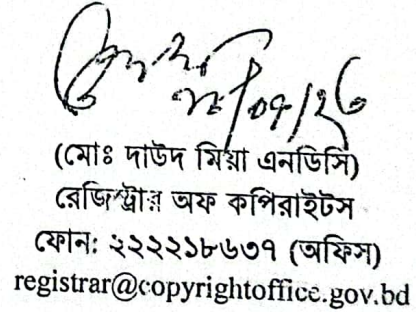 (মোঃ দাউদ মিয়া এনডিসি)
রেজিস্ট্রার অফ কপিরাইটস
ফোন: ২২২২১৮৬৩৭ (অফিস)
registrar@copyrightoffice.gov.bd